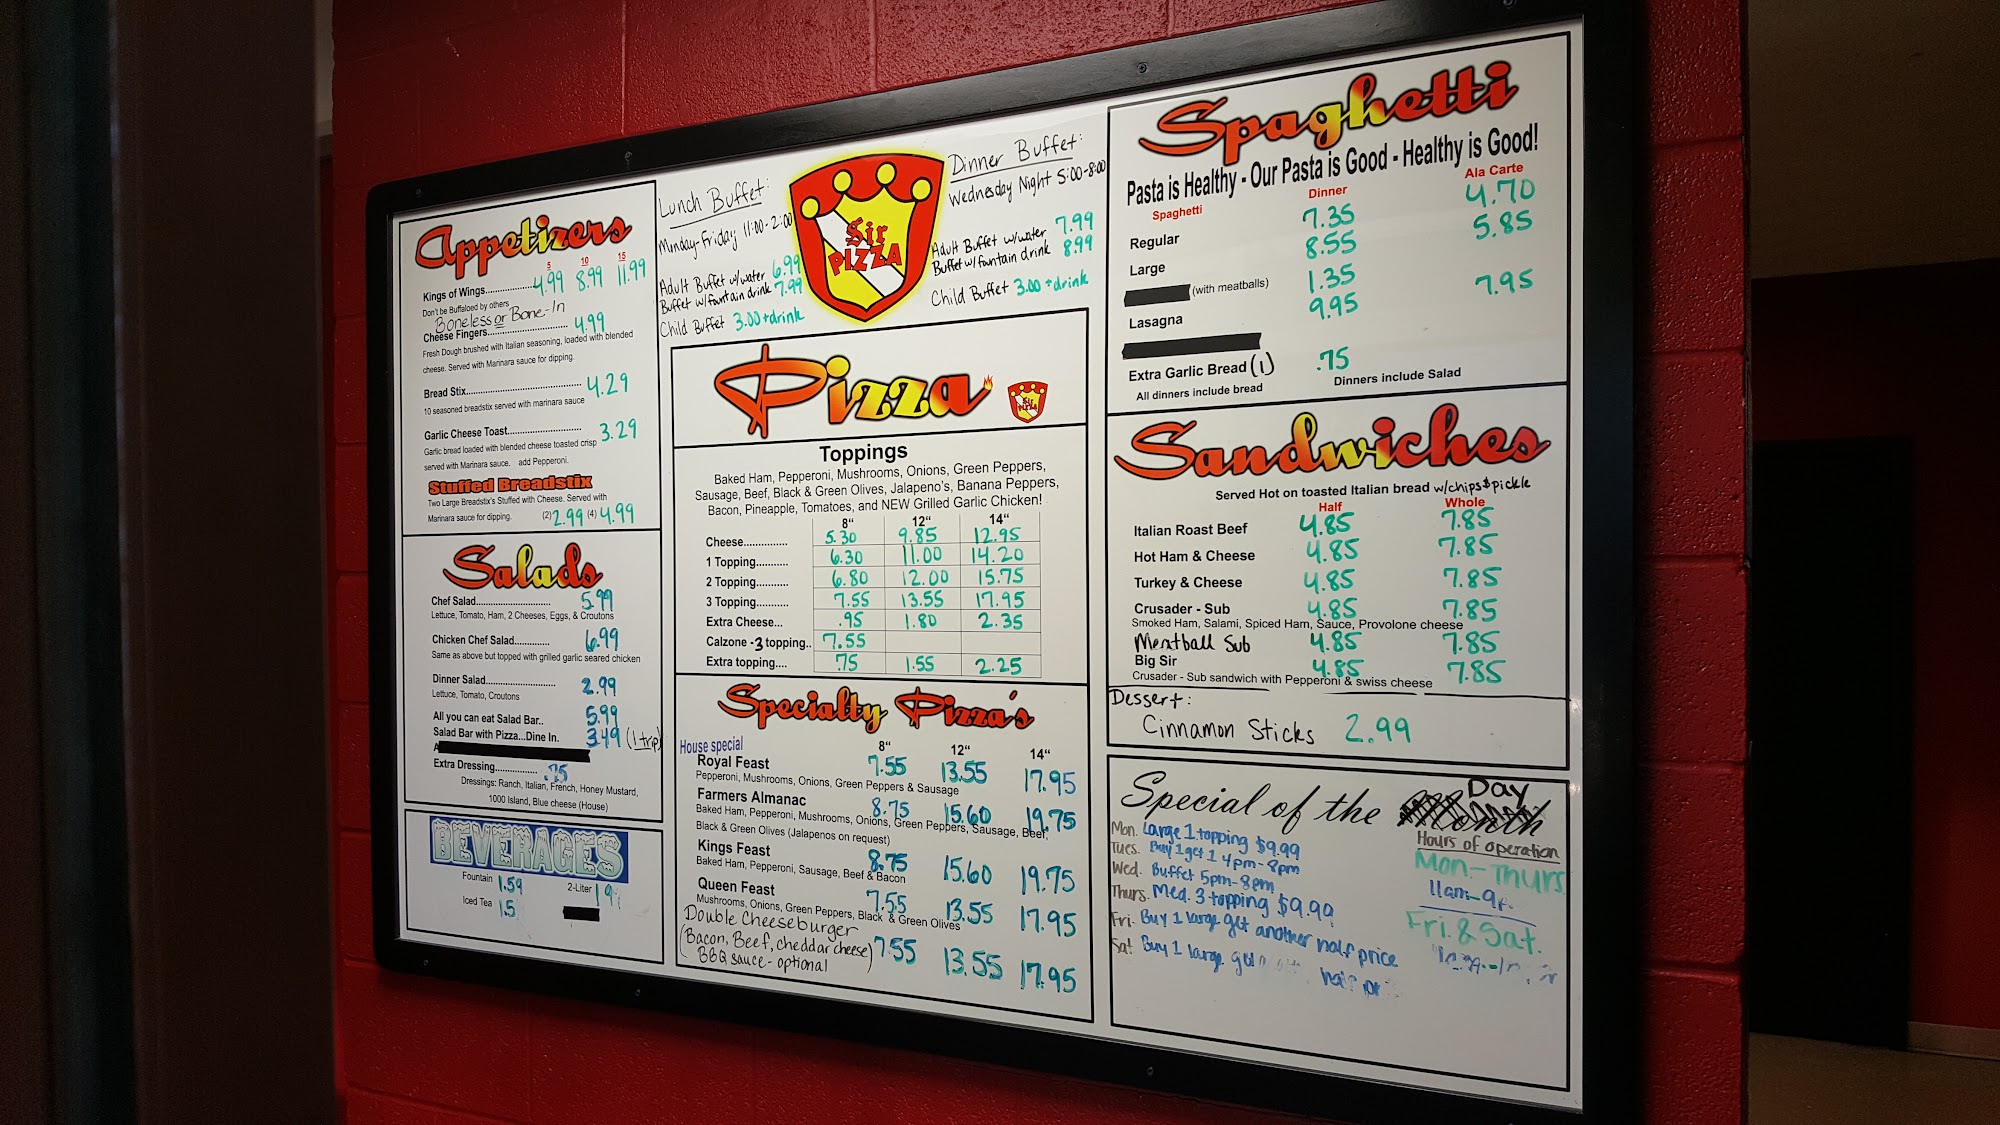 Appetizers
5 10 15
Kings of Wings.................... 4.99 8.99 11.99
Don't be Buffaloed by others
Boneless or Bone-In
Cheese Fingers.......................... 4.99
Fresh Dough brushed with Italian seasoning, loaded with blended
cheese. Served with Marinara sauce for dipping.
Bread Stix..................................... 4.29
10 seasoned breadstix served with marinara sauce
Garlic Cheese Toast........................ 3.29
Garlic bread loaded with blended cheese toasted crisp
served with Marinara sauce. add Pepperoni.
Stuffed Breadstix
Two Large Breadstix's Stuffed with Cheese. Served with
Marinara sauce for dipping. (2) 2.99 (4) 4.99
Salads
Chef Salad........................... 5.99
Lettuce, Tomato, Ham, 2 Cheeses, Eggs, & Croutons
Chicken Chef Salad............. 6.99
Same as above but topped with grilled garlic seared chicken
Dinner Salad......................... 2.99
Lettuce, Tomato, Croutons
All you can eat Salad Bar.. 5.99
Salad Bar with Pizza...Dine In. 3.49 (1 trip)
A
Extra Dressing................. .75
Dressings: Ranch, Italian, French, Honey Mustard,
1000 Island, Blue cheese (House)
BEVERAGES
Fountain 1.59 2-Liter
Iced Tea
Lunch Buffet:
Munday-Friday 11:00-2:00
Adult Buffet w/water 6.99
Buffet w/fountain drink 7.99
Child Buffet 3.00 + drink
Sir
PIZZA
Dinner Buffet:
Wednesday Night 5:00-8:00
Adult Buffet w/water 7.99
Buffet w/fountain drink 8.99
Child Buffet 3.00 + drink
Pizza
Sir
PIZZA
Toppings
Baked Ham, Pepperoni, Mushrooms, Onions, Green Peppers,
Sausage, Beef, Black & Green Olives, Jalapeno's, Banana Peppers,
Bacon, Pineapple, Tomatoes, and NEW Grilled Garlic Chicken!
8" 12" 14"
Cheese............... 5.30 9.85 12.95
1 Topping........... 6.30 11.00 14.20
2 Topping........... 6.80 12.00 15.75
3 Topping........... 7.55 13.55 17.95
Extra Cheese... .95 1.80 2.35
Calzone -3 topping.. 7.55
Extra topping.... .75 1.55 2.25
Specialty Pizza's
House special 8" 12" 14"
Royal Feast 7.55 13.55 17.95
Pepperoni, Mushrooms, Onions, Green Peppers & Sausage
Farmers Almanac 8.75 15.60 19.75
Baked Ham, Pepperoni, Mushrooms, Onions, Green Peppers, Sausage, Beef,
Black & Green Olives (Jalapenos on request)
Kings Feast 8.75 15.60 19.75
Baked Ham, Pepperoni, Sausage, Beef & Bacon
Queen Feast 7.55 13.55 17.95
Mushrooms, Onions, Green Peppers, Black & Green Olives
Double Cheeseburger
(Bacon, Beef, cheddar cheese) 7.55 13.55 17.95
BBQ sauce - optional
Spaghetti
Pasta is Healthy - Our Pasta is Good - Healthy is Good!
Spaghetti Dinner Ala Carte
Regular 7.35 4.70
Large 8.55 5.85
(with meatballs) 1.35
Lasagna 9.95 7.95
Extra Garlic Bread (1) .75
All dinners include bread Dinners include Salad
Sandwiches
Served Hot on toasted Italian bread w/chips & pickle
Half Whole
Italian Roast Beef 4.85 7.85
Hot Ham & Cheese 4.85 7.85
Turkey & Cheese 4.85 7.85
Crusader - Sub 4.85 7.85
Smoked Ham, Salami, Spiced Ham, Sauce, Provolone cheese
Meatball Sub 4.85 7.85
Big Sir 4.85 7.85
Crusader - Sub sandwich with Pepperoni & swiss cheese
Dessert:
Cinnamon Sticks 2.99
Special of the Day
Mon. Large 1 topping $9.99
Tues. Buy 1 get 1 4pm-8pm
Wed. Buffet 5pm-8pm
Thurs. Med. 3 topping $9.99
Fri. Buy 1 large get another half price
Sat. Buy 1 large
Hours of operation
Mon-Thurs
11am-9p.
Fri. & Sat.